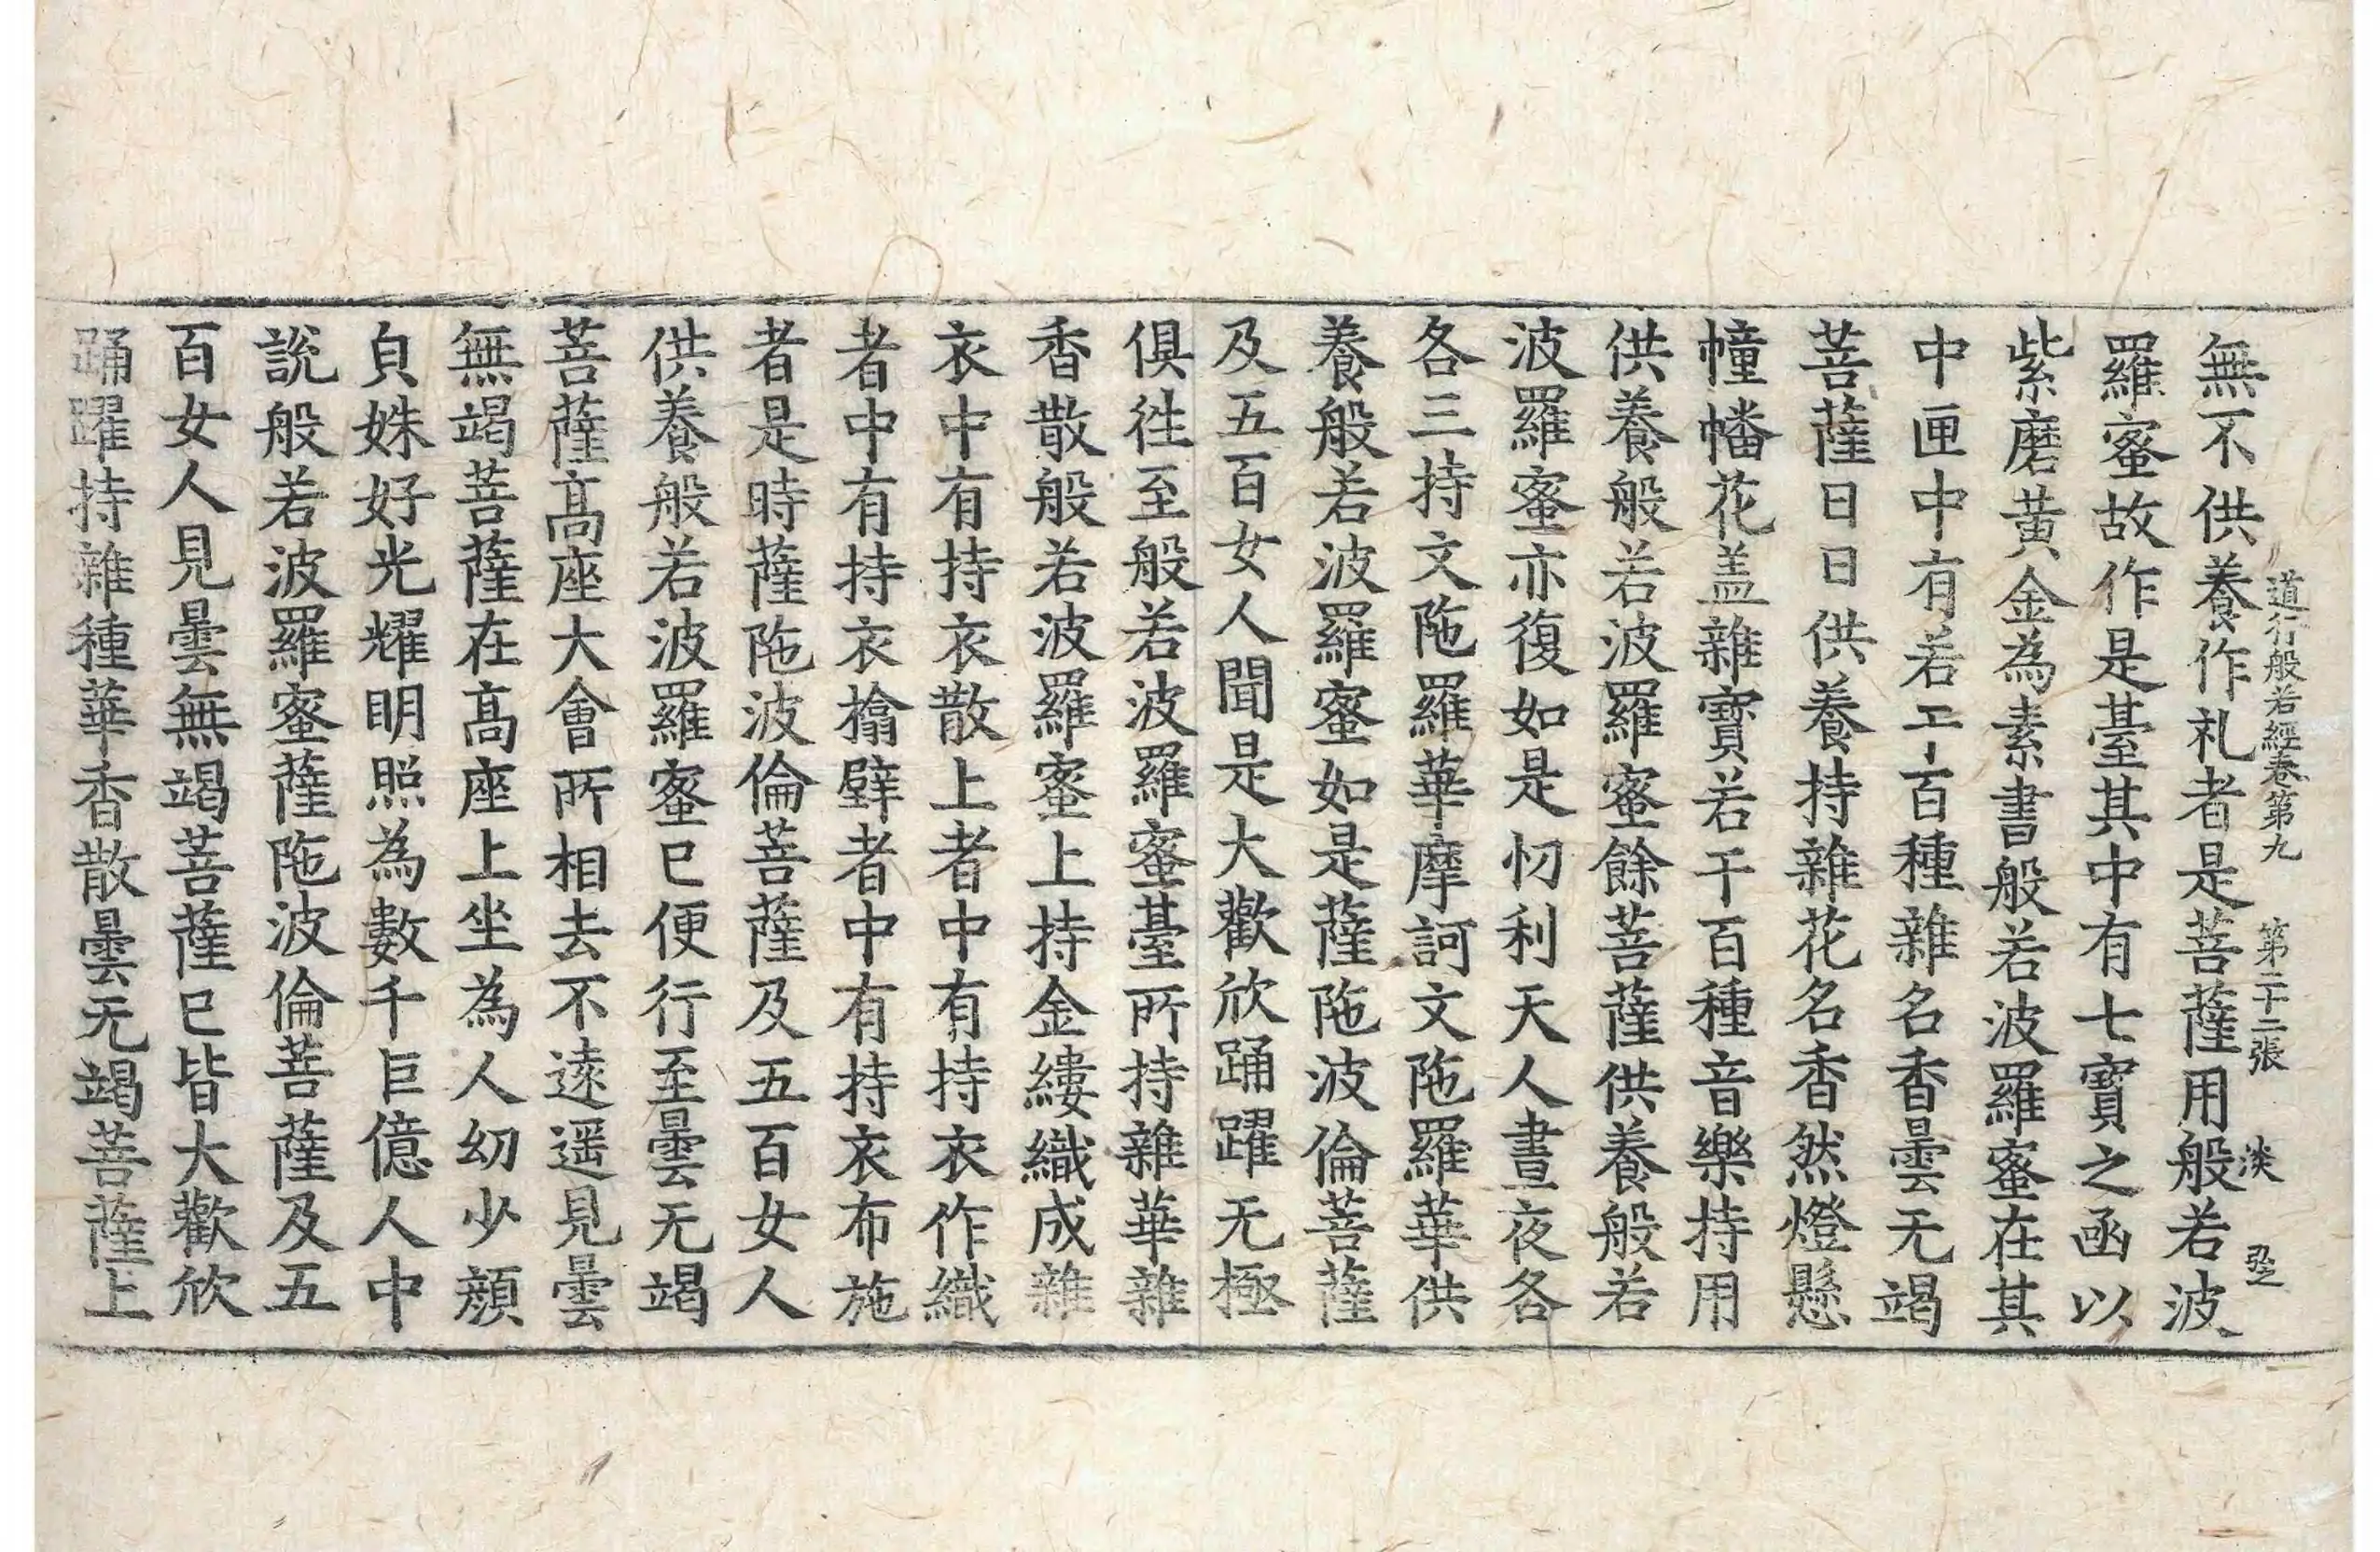 道行般若經卷第九 第二十二張 淡
無不供養作礼者是菩薩用般若波
羅蜜故作是臺其中有七寶之函以
紫磨黃金為素書般若波羅蜜在其
中匣中有若干百種雜名香曇无竭
菩薩日日供養持雜花名香然燈懸
幢幡花盖雜寶若干百種音樂持用
供養般若波羅蜜餘菩薩供養般若
波羅蜜亦復如是忉利天人晝夜各
各三持文陁羅華摩訶文陁羅華供
養般若波羅蜜如是薩陁波倫菩薩
及五百女人聞是大歡欣踊躍无極
俱徃至般若波羅蜜臺所持雜華雜
香散般若波羅蜜上持金縷織成雜
衣中有持衣散上者中有持衣作織
者中有持衣㩉壁者中有持衣布施
者是時薩陁波倫菩薩及五百女人
供養般若波羅蜜已便行至曇无竭
菩薩高座大會所相去不遠遥見曇
無竭菩薩在高座上坐為人幼少顔
皃姝好光耀明照為數千巨億人中
說般若波羅蜜薩陁波倫菩薩及五
百女人見曇無竭菩薩已皆大歡欣
踊躍持雜種華香散曇无竭菩薩上